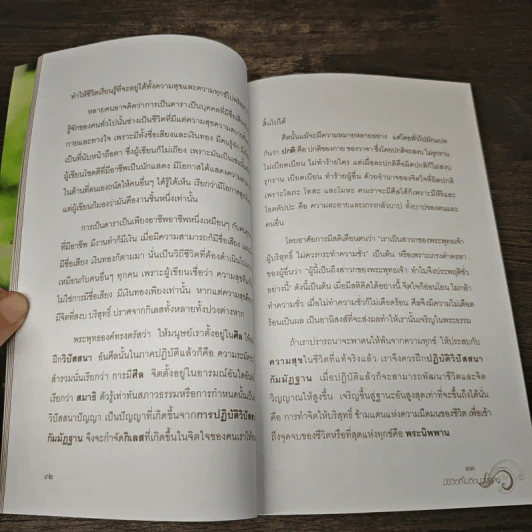 ทำให้ชีวิตเรียนรู้ที่จะอยู่ได้ทั้งความสุขและความทุกข์ไปพร้อม
หลายคนอาจคิดว่าการเป็นดารา เป็นบุคคลที่มีชื่อเสียง
รู้จักของคนทั่วไปนั้นช่างเป็นชีวิตที่มีแต่ความสุขความสบาย
กายและทางใจ เพราะมีทั้งชื่อเสียงและเงินทอง มีคนรู้จัก
เป็นที่นับหน้าถือตา ซึ่งผู้เขียนก็ไม่เถียง เพราะมันเป็นเช่นนั้น
ผู้เขียนโชคดีที่มีอาชีพเป็นนักแสดง มีโอกาสได้แสดงความ
ในด้านที่ตนเองถนัดให้คนอื่นๆ ได้รู้ได้เห็น เรียกว่ามีโอกาส
แต่ผู้เขียนก็มองว่ามันคืองานชิ้นหนึ่งเท่านั้น
การเป็นดาราเป็นเพียงอาชีพอาชีพหนึ่งเหมือนๆ กับคน
ที่มีอาชีพ มีงานทำก็มีเงิน เมื่อมีความสามารถก็มีชื่อเสียง
มีชื่อเสียง เงินทองก็ตามมา นั่นเป็นวิถีชีวิตที่ต้องดำเนินไป
เหมือนกับคนอื่นๆ ทุกคน เพราะผู้เขียนเชื่อว่า ความสุขที่
ไม่ใช่การมีชื่อเสียง มีเงินทองเพียงเท่านั้น หากแต่ความสุข
มีจิตที่สงบ บริสุทธิ์ ปราศจากกิเลสทั้งหลายทั้งปวงต่างหาก
พระพุทธองค์ทรงตรัสว่า ให้มนุษย์เราตั้งอยู่ในศีล
ฝึกวิปัสสนา อันศีลนั้นในภาคปฏิบัติแล้วก็คือ ความระมัด
สำรวมนั่นเรียกว่า การมีศีล จิตตั้งอยู่ในอารมณ์อันใดอัน
เรียกว่า สมาธิ ตัวรู้เท่าทันสภาวธรรมหรือการกำหนดนั้น
วิปัสสนาปัญญา เป็นปัญญาที่เกิดขึ้นจากการปฏิบัติวิปัสส
กัมมัฏฐาน จึงจะกำจัดกิเลสที่เกิดขึ้นในจิตใจของคนเราให้
๓๒
สิ้นไปได้
ศีลนั้นแม้จะมีความหมายหลายอย่าง แต่โดยทั่วไปมักแปล
กันว่า ปกติ คือ ปกติของกาย ของวาจา ซึ่งโดยปกติจะสงบ ไม่รุกราน
ไม่เบียดเบียน ไม่ทำร้ายใคร แต่เมื่อละปกติคือผิดปกติก็ไม่สงบ
รุกราน เบียดเบียน ทำร้ายผู้อื่น ด้วยอำนาจของจิตใจที่ผิดปกติ
เพราะโลภะ โทสะ และโมหะ คนเราจะมีศีลได้ก็เพราะมีหิริและ
โอตตัปปะ คือ ความละอายและเกรงกลัวบาป ทั้งบาปของตนและ
คนอื่น
โดยอาศัยการมีสติเตือนตนว่า "เราเป็นสาวกของพระพุทธเจ้า
ผู้บริสุทธิ์ ไม่ควรกระทำความชั่ว" เป็นต้น หรือเพราะเกรงคำครหา
ของผู้อื่นว่า "ผู้นี้เป็นถึงสาวกของพระพุทธเจ้า ทำไมจึงประพฤติชั่ว
อย่างนี้" ดังนี้เป็นต้น เมื่อมีสติคิดได้อย่างนี้ จิตใจก็อ่อนโยน ไม่กล้า
ทำความชั่ว เมื่อไม่ทำความชั่วก็ไม่เดือดร้อน ศีลจึงมีความไม่เดือด
ร้อนเป็นผล เป็นอานิสงส์ที่จะส่งผลทำให้เรานั้นเจริญในพระธรรม
ถ้าเราปรารถนาจะพาตนให้พ้นจากความทุกข์ ให้ประสบกับ
ความสุขในชีวิตที่แท้จริงแล้ว เราจึงควรฝึกปฏิบัติวิปัสสนา
กัมมัฏฐาน เมื่อปฏิบัติแล้วก็จะสามารถพัฒนาชีวิตและจิต
วิญญาณให้สูงขึ้น เจริญขึ้นสู่ฐานะอันสูงสุดเท่าที่จะขึ้นถึงได้นั่น
คือ การทำจิตให้บริสุทธิ์ ข้ามแดนแห่งความมืดมนของชีวิต เพื่อเข้า
ถึงจุดจบของชีวิตหรือที่สุดแห่งทุกข์คือ พระนิพพาน
๓๓